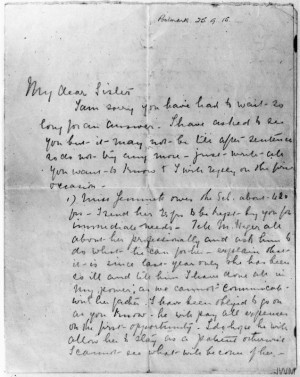 Postmark 26.9.15.
My dear Sister
I am sorry you have had to wait so
long for an answer. I have asked to see
you but it may not be till after sentence
so do not try any more - just write all
you want to know & I will reply on the first
occasion.
1) Miss owes the Sch. about
frs - I send her frs to be kept by you for
immediate needs. Tell M. all
about her personally and ask him to
do what he can for her - explain that
it is since last year only she has been
so ill and tell him I have done all in
my power, as we cannot communicate
with her father I have been obliged to go on
as you know - he will pay all expenses
on the first opportunity - I do hope he will
allow her to stay as a patient otherwise
I cannot see what will become of her -
IWM